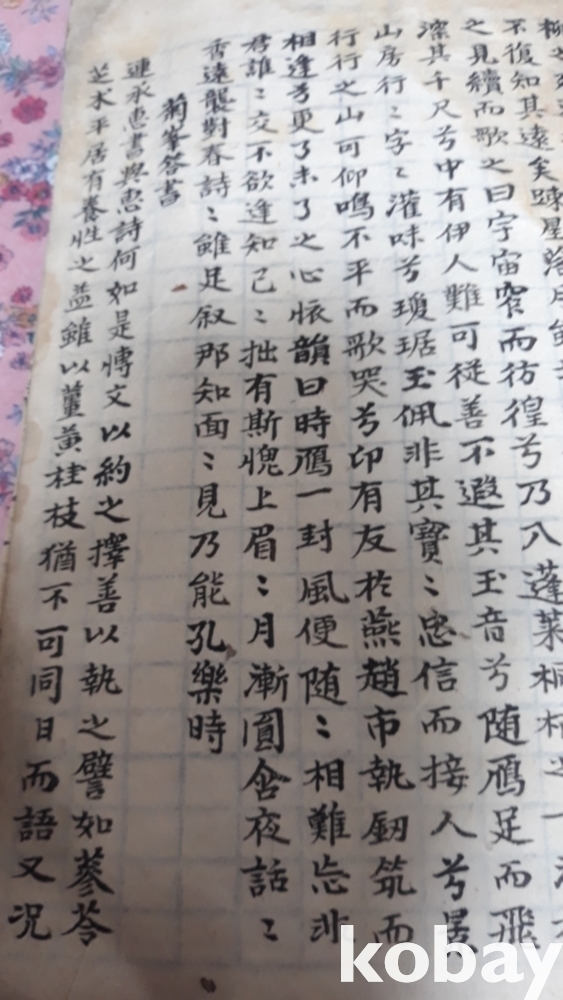 柳
不復知其遠矣踈星落月
之見續而歌之曰宇宙窄而彷徨兮乃入蓬萊桐柏之一
潔其千尺兮中有伊人難可從善不遐其玉音兮随鴈足而飛
山房行〻字〻灌味兮瓊琚玉佩非其寶〻忠信而接人兮昊
行行之山可仰鳴不平而歌哭兮卬有友於燕趙市執釰筑而
相逢兮更了未了之心恢韻曰時鴈一封風便随〻相難忘非
君誰〻交不欲逢知己〻拙有斯愧上眉〻月漸圓含夜話〻
香遠襲對春詩〻雖足叙那知面〻見乃能孔樂時
菊峯答書
連承惠書與惠詩何如是愽文以約之擇善以執之譬如蔘苓
芝朮平居有養性之益雖以薑黃桂枝猶不可同日而語又况
kobay